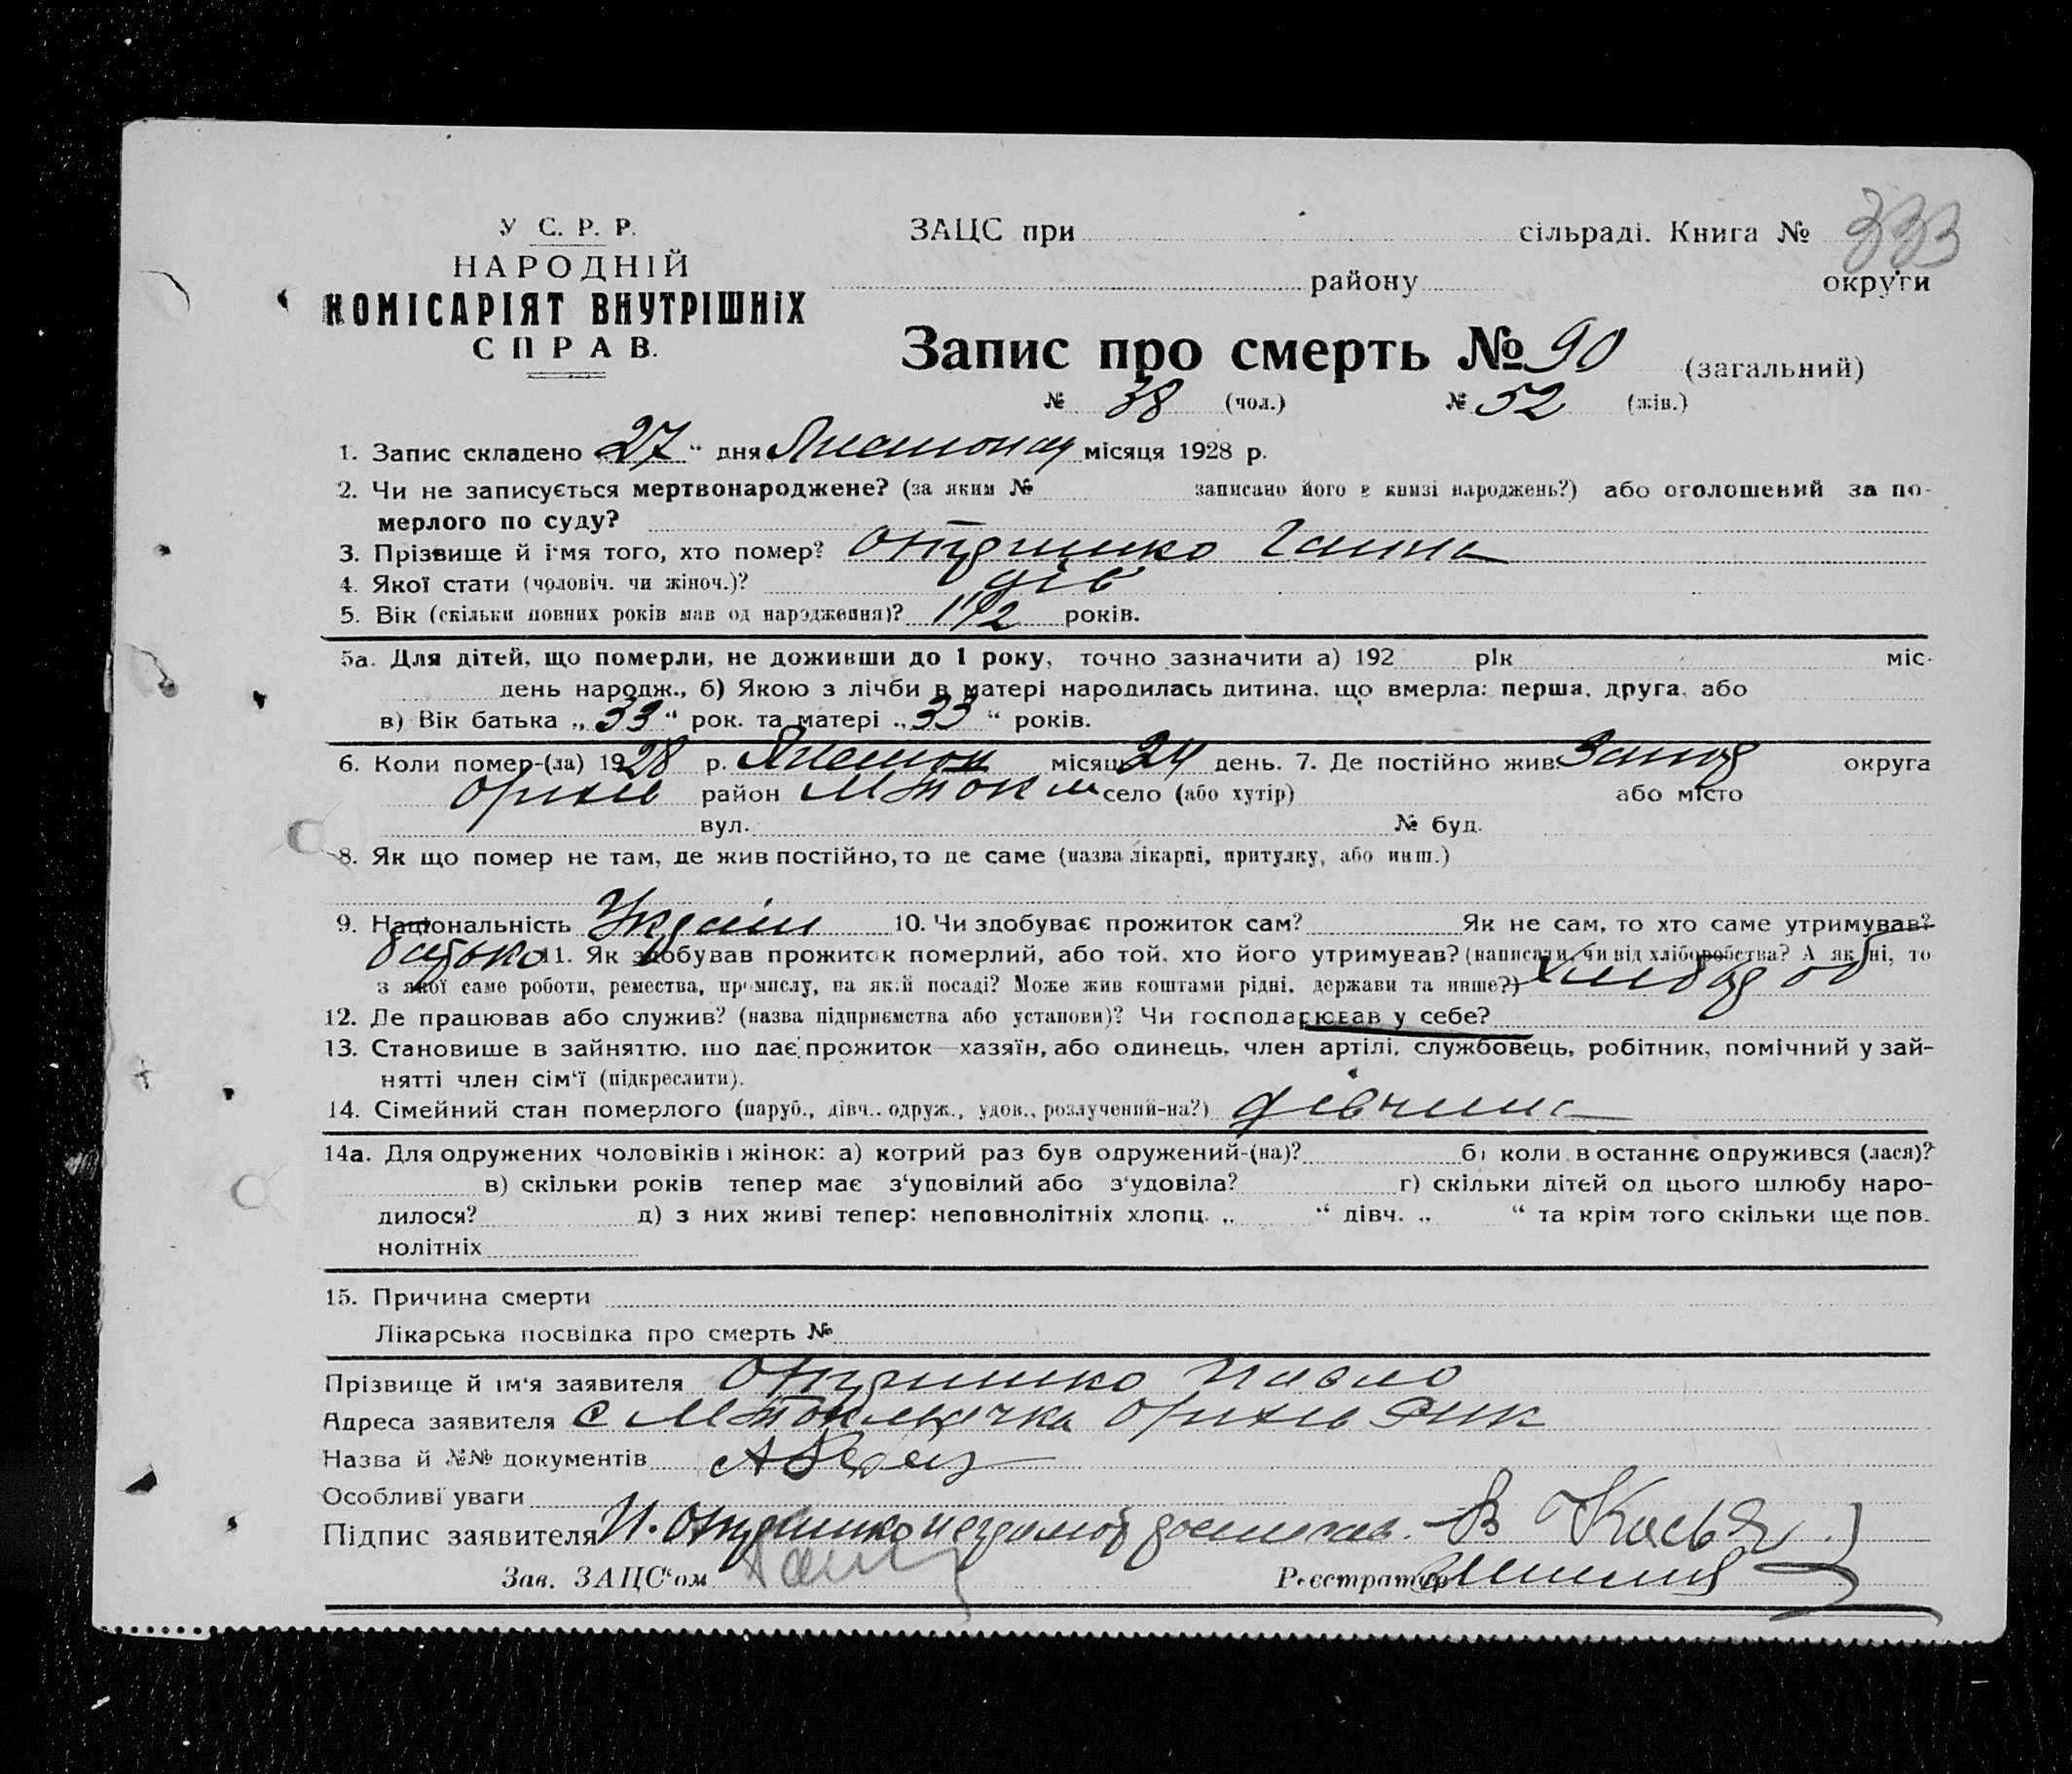 У С. Р. Р.
НАРОДНІЙ
КОМІСАРІЯТ ВНУТРІШНІХ
СПРАВ.
ЗАЦС при сільраді. Книга № 333
району округи
Запис про смерть № 90 (загальний)
№ 38 (чол.) № 52 (жін.)
1. Запис складено „27“ дня Листопад місяця 1928 р.
2. Чи не записується мертвонароджене? (за яким № записано його в книзі народжень?) або оголошений за по-
мерлого по суду?
3. Прізвище й ім'я того, хто помер? Ганна
4. Якої стати (чоловіч. чи жіноч.)? дів
5. Вік (скільки повних років мав од народження)? 1 1/2 років.
5а. Для дітей, що померли, не доживши до 1 року, точно зазначити а) 192 рік міс.
день народж., б) Якою з лічби в матері народилась дитина, що вмерла: перша, друга, або
в) Вік батька „33“ рок. та матері „33“ років.
6. Коли помер-(ла) 1928 р. Листоп місяць 24 день. 7. Де постійно жив Запор округа
Оріхів район М Токм село (або хутір) або місто
вул. № буд.
8. Як що помер не там, де жив постійно, то де саме (назва лікарні, притулку, або инш.)
9. Національність Україн 10. Чи здобуває прожиток сам? Як не сам, то хто саме утримував?
батько 11. Як здобував прожиток померлий, або той, хто його утримував? (написати, чи від хліборобства? А як ні, то
з якої саме роботи, ремества, промислу, на якій посаді? Може жив коштами рідні, держави та инше?) хлібороб
12. Де працював або служив? (назва підприємства або установи)? Чи господарював у себе?
13. Становище в зайняттю, що дає прожиток—хазяїн, або одинець, член артілі, службовець, робітник, помічний у зай-
нятті член сім'ї (підкреслити).
14. Сімейний стан померлого (паруб., дівч., одруж., удов., розлучений-на?) дівчина
14а. Для одружених чоловіків і жінок: а) котрий раз був одружений-(на)? б) коли востаннє одружився (лася)?
в) скільки років тепер має з'удовілий або з'удовіла? г) скільки дітей од цього шлюбу наро-
дилося? д) з них живі тепер: неповнолітніх хлопц. „ “ дівч. „ “ та крім того скільки ще пов.
нолітніх
15. Причина смерти
Лікарська посвідка про смерть №
Прізвище й ім'я заявителя Павло
Адреса заявителя с М Токмачка Оріхів Рик
Назва й №№ документів
Особливі уваги
Підпис заявителя
Зав. ЗАЦС'ом
Реєстратор